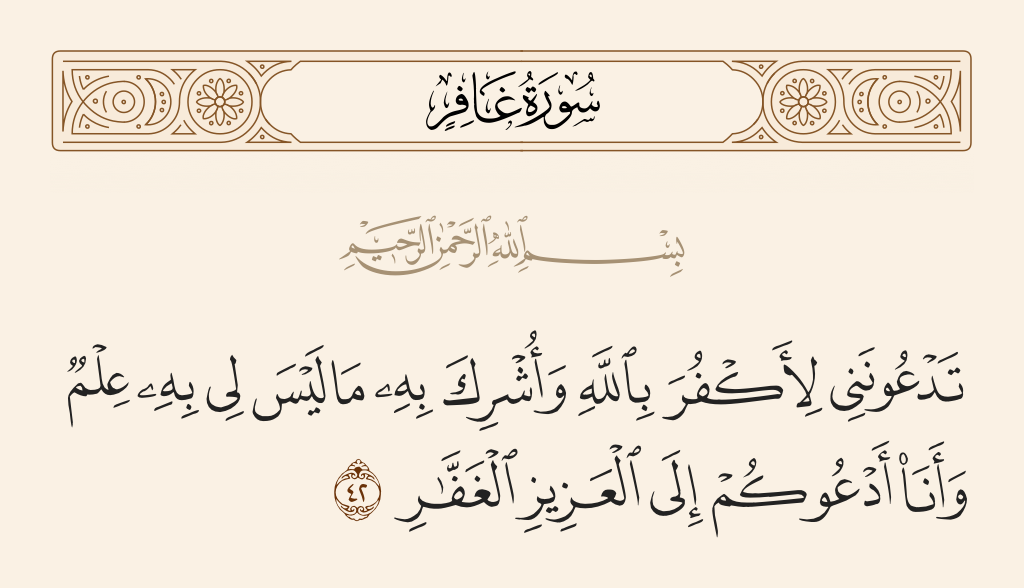 سُورَةُ غَافِرٍ
بِسْمِ ٱللَّهِ ٱلرَّحْمَٰنِ ٱلرَّحِيمِ
تَدْعُونَنِى لِأَكْفُرَ بِٱللَّهِ وَأُشْرِكَ بِهِۦ مَا لَيْسَ لِى بِهِۦ عِلْمٌ
وَأَنَا۠ أَدْعُوكُمْ إِلَى ٱلْعَزِيزِ ٱلْغَفَّٰرِ ٤٢